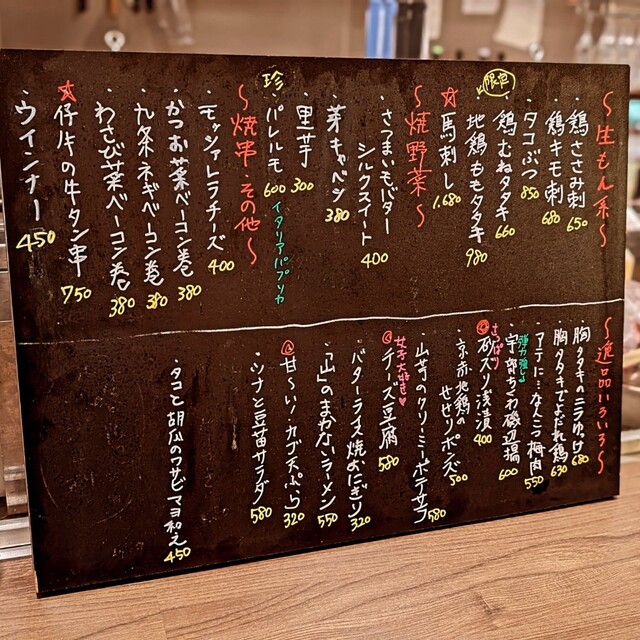 〜生もん系〜
鶏ささみ刺 650
鶏キモ刺 680
タコぶつ 850
鶏むねタタキ 660
限定
地鶏ももタタキ 980
☆馬刺し 1.680
〜焼野菜〜
さつまいもバター
シルクスイート 400
芽キャベツ 380
里芋 300
珍
パレルモ 600 イタリアパプリカ
〜焼串・その他〜
モッツァレラチーズ 400
かつお菜ベーコン巻 380
九条ネギベーコン巻 380
わさび菜ベーコン巻 380
☆仔牛の牛タン串 750
・ウインナー 450
〜逸品いろいろ〜
胸タタキのニラゆっけ 680
胸タタキでよだれ鶏 630
アテに…なんこつ梅肉 550
弾力強しる
宇部ちくわ磯辺揚 600
さっぱり
砂ズリ浅漬 400
京赤地鶏の
せせりポンズ 500
山芋のクリーミーポテサラ 580
女子大好き♥
チーズ豆腐 580
バターライス焼おにぎり 320
「山」のまかないラーメン 550
甘〜い！カブ天ぷら 320
ツナと豆苗サラダ 580
タコと胡瓜のワサビマヨ和え 450